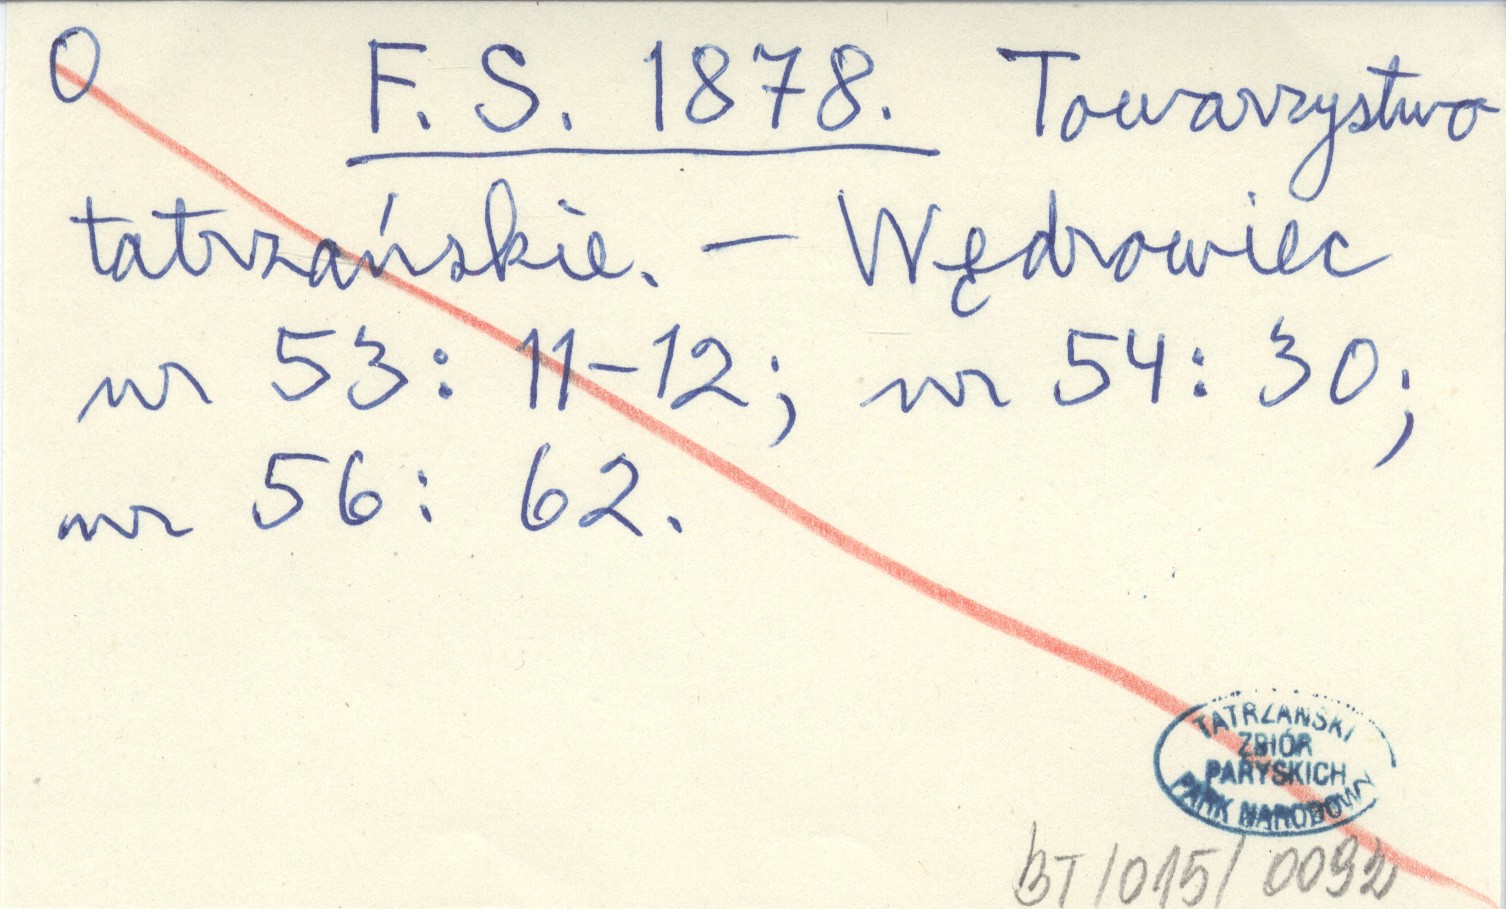 O F. S. 1878. Towarzystwo
tatrzańskie. — Wędrowiec
nr 53: 11-12; nr 54: 30;
nr 56: 62.
TATRZAŃSKI
ZBIÓR
PARYSKICH
PARK NARODOWY
BT/015/0092